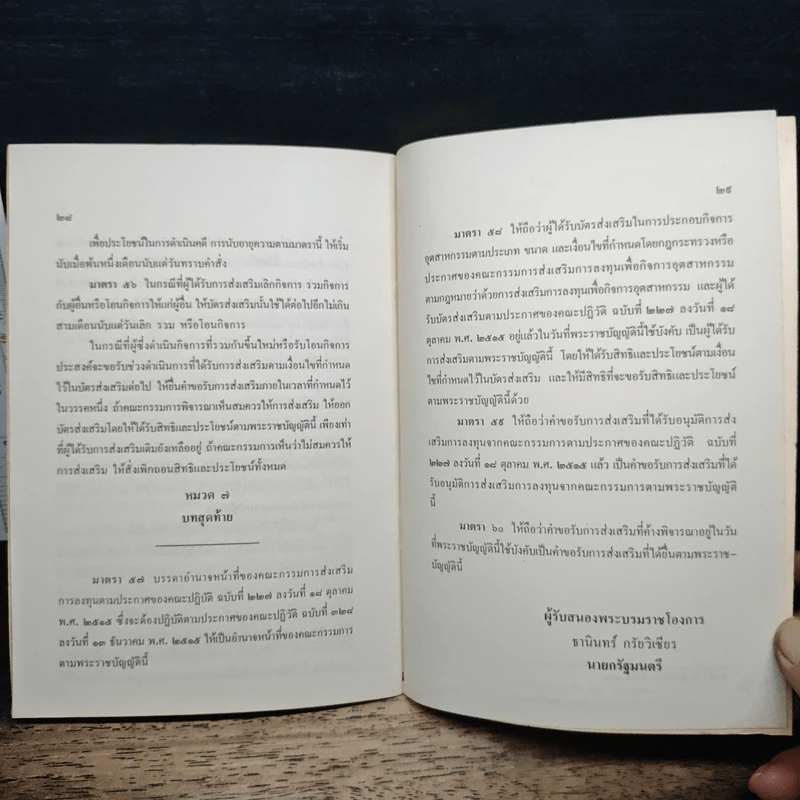 ๒๘
เพื่อประโยชน์ในการดำเนินคดี การนับอายุความตามมาตรานี้ ให้เริ่ม
นับเมื่อพ้นหนึ่งเดือนนับแต่วันทราบคำสั่ง
มาตรา ๕๖ ในกรณีที่ผู้ได้รับการส่งเสริมเลิกกิจการ รวมกิจการ
กับผู้อื่นหรือโอนกิจการให้แก่ผู้อื่น ให้บัตรส่งเสริมนั้นใช้ได้ต่อไปอีกไม่เกิน
สามเดือนนับแต่วันเลิก รวม หรือโอนกิจการ
ในกรณีที่ผู้ซึ่งดำเนินกิจการที่รวมกันขึ้นใหม่หรือรับโอนกิจการ
ประสงค์จะขอรับช่วงดำเนินการที่ได้รับการส่งเสริมตามเงื่อนไขที่กำหนด
ไว้ในบัตรส่งเสริมต่อไป ให้ยื่นคำขอรับการส่งเสริมภายในเวลาที่กำหนดไว้
ในวรรคหนึ่ง ถ้าคณะกรรมการพิจารณาเห็นสมควรให้การส่งเสริม ให้ออก
บัตรส่งเสริมโดยให้ได้รับสิทธิและประโยชน์ตามพระราชบัญญัตินี้ เพียงเท่า
ที่ผู้ได้รับการส่งเสริมเดิมยังเหลืออยู่ ถ้าคณะกรรมการเห็นว่าไม่สมควรให้
การส่งเสริม ให้สั่งเพิกถอนสิทธิและประโยชน์ทั้งหมด
หมวด ๗
บทสุดท้าย
มาตรา ๕๗ บรรดาอำนาจหน้าที่ของคณะกรรมการส่งเสริม
การลงทุนตามประกาศของคณะปฏิบัติ ฉบับที่ ๒๒๗ ลงวันที่ ๑๘ ตุลาคม
พ.ศ. ๒๕๑๕ ซึ่งจะต้องปฏิบัติตามประกาศของคณะปฏิวัติ ฉบับที่ ๓๒๘
ลงวันที่ ๑๓ ธันวาคม พ.ศ. ๒๕๑๕ ให้เป็นอำนาจหน้าที่ของคณะกรรมการ
ตามพระราชบัญญัตินี้
๒๙
มาตรา ๕๘ ให้ถือว่าผู้ได้รับบัตรส่งเสริมในการประกอบกิจการ
อุตสาหกรรมตามประเภท ขนาด และเงื่อนไขที่กำหนดโดยกฎกระทรวงหรือ
ประกาศของคณะกรรมการส่งเสริมการลงทุนเพื่อกิจการอุตสาหกรรม
ตามกฎหมายว่าด้วยการส่งเสริมการลงทุนเพื่อกิจการอุตสาหกรรม และผู้ได้
รับบัตรส่งเสริมตามประกาศของคณะปฏิวัติ ฉบับที่ ๒๒๗ ลงวันที่ ๑๘
ตุลาคม พ.ศ. ๒๕๑๕ อยู่แล้วในวันที่พระราชบัญญัตินี้ใช้บังคับ เป็นผู้ได้รับ
การส่งเสริมตามพระราชบัญญัตินี้ โดยให้ได้รับสิทธิและประโยชน์ตามเงื่อน
ไขที่กำหนดไว้ในบัตรส่งเสริม และให้มีสิทธิที่จะขอรับสิทธิและประโยชน์
ตามพระราชบัญญัตินี้ด้วย
มาตรา ๕๙ ให้ถือว่าคำขอรับการส่งเสริมที่ได้รับอนุมัติการส่ง
เสริมการลงทุนจากคณะกรรมการตามประกาศของคณะปฏิวัติ ฉบับที่
๒๒๗ ลงวันที่ ๑๘ ตุลาคม พ.ศ. ๒๕๑๕ แล้ว เป็นคำขอรับการส่งเสริมที่ได้
รับอนุมัติการส่งเสริมการลงทุนจากคณะกรรมการตามพระราชบัญญัติ
นี้
มาตรา ๖๐ ให้ถือว่าคำขอรับการส่งเสริมที่ค้างพิจารณาอยู่ในวัน
ที่พระราชบัญญัตินี้ใช้บังคับเป็นคำขอรับการส่งเสริมที่ได้ยื่นตามพระราช-
บัญญัตินี้
ผู้รับสนองพระบรมราชโองการ
ธานินทร์ กรัยวิเชียร
นายกรัฐมนตรี